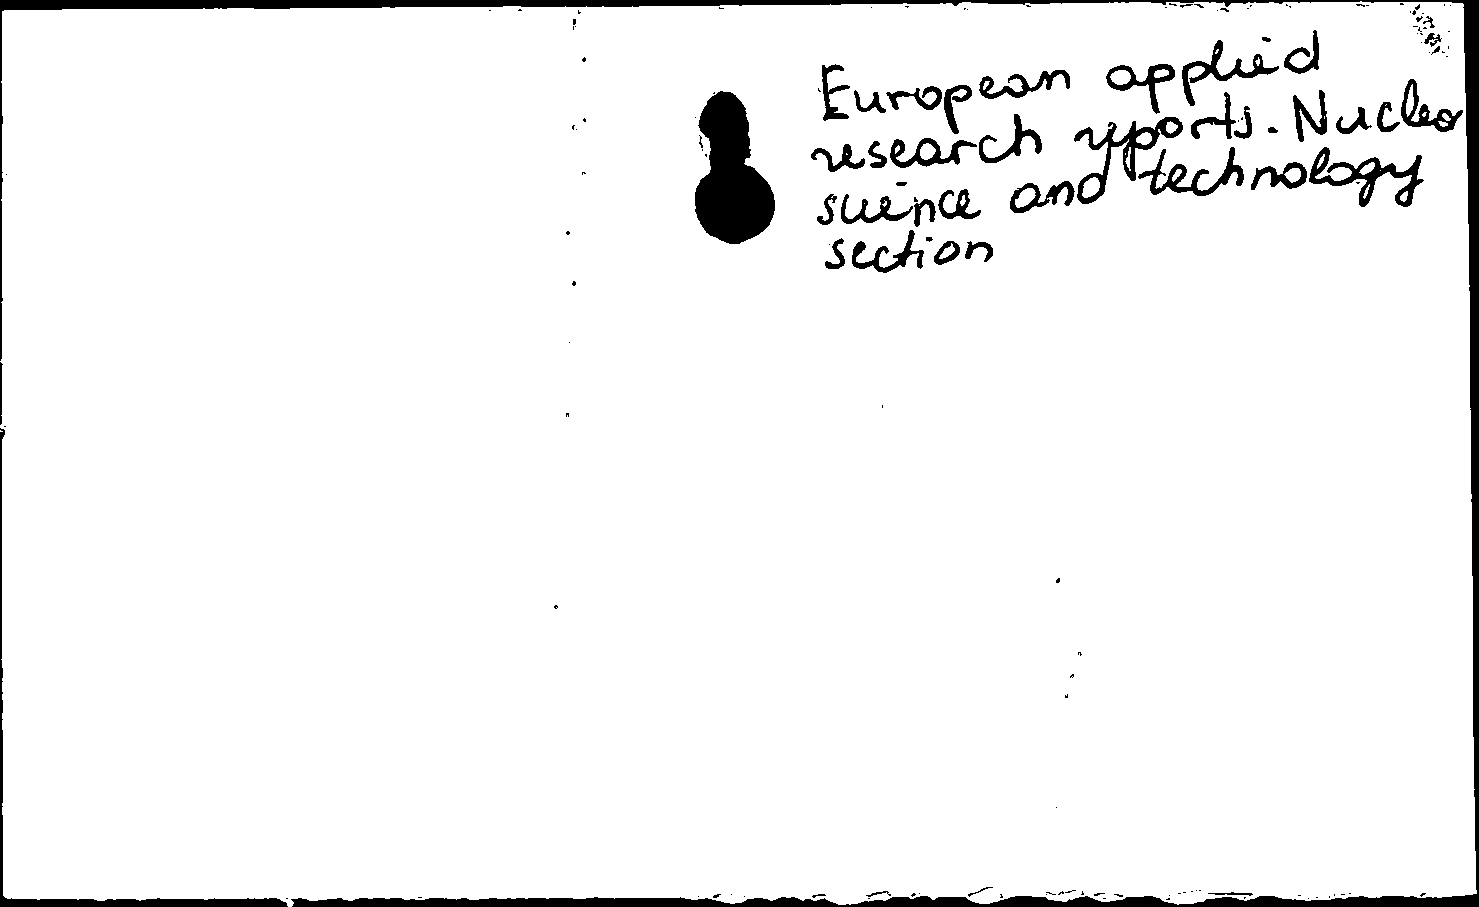 European applied
research reports. Nuclea
science and technology
section